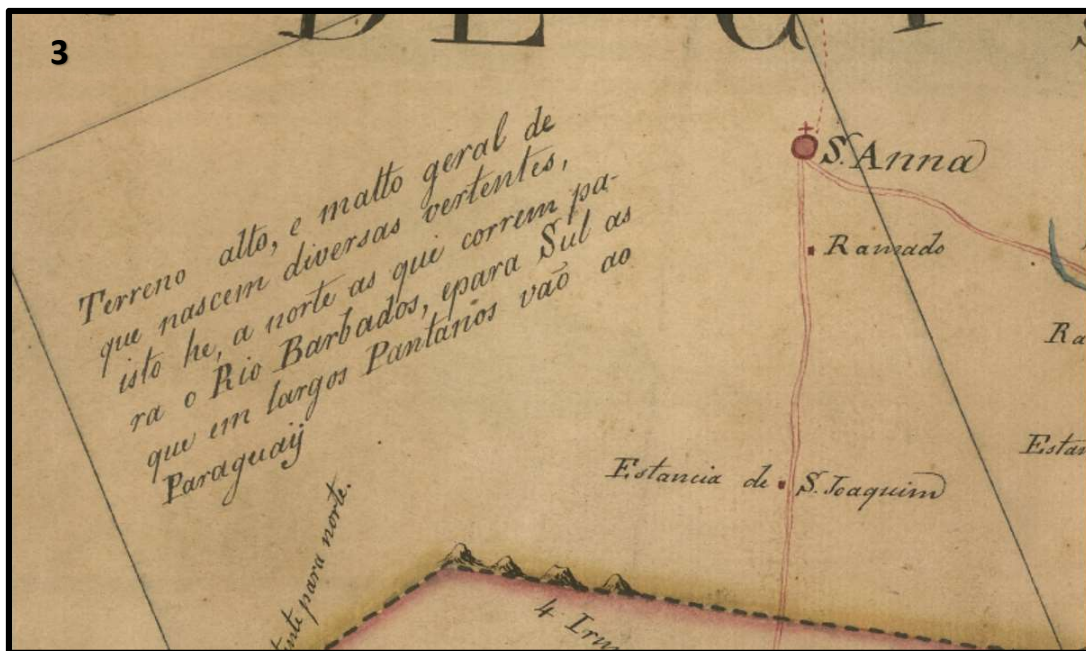 3
DE
S. Anna
Terreno alto, e matto geral de
que nascem diversas vertentes,
isto he, a norte as que correm pa-
ra o Rio Barbados, epara Sul as
que em largos Pantanos vaõ ao
Paraguaij
Ramado
Estancia de S. Joaquim
para norte.
4